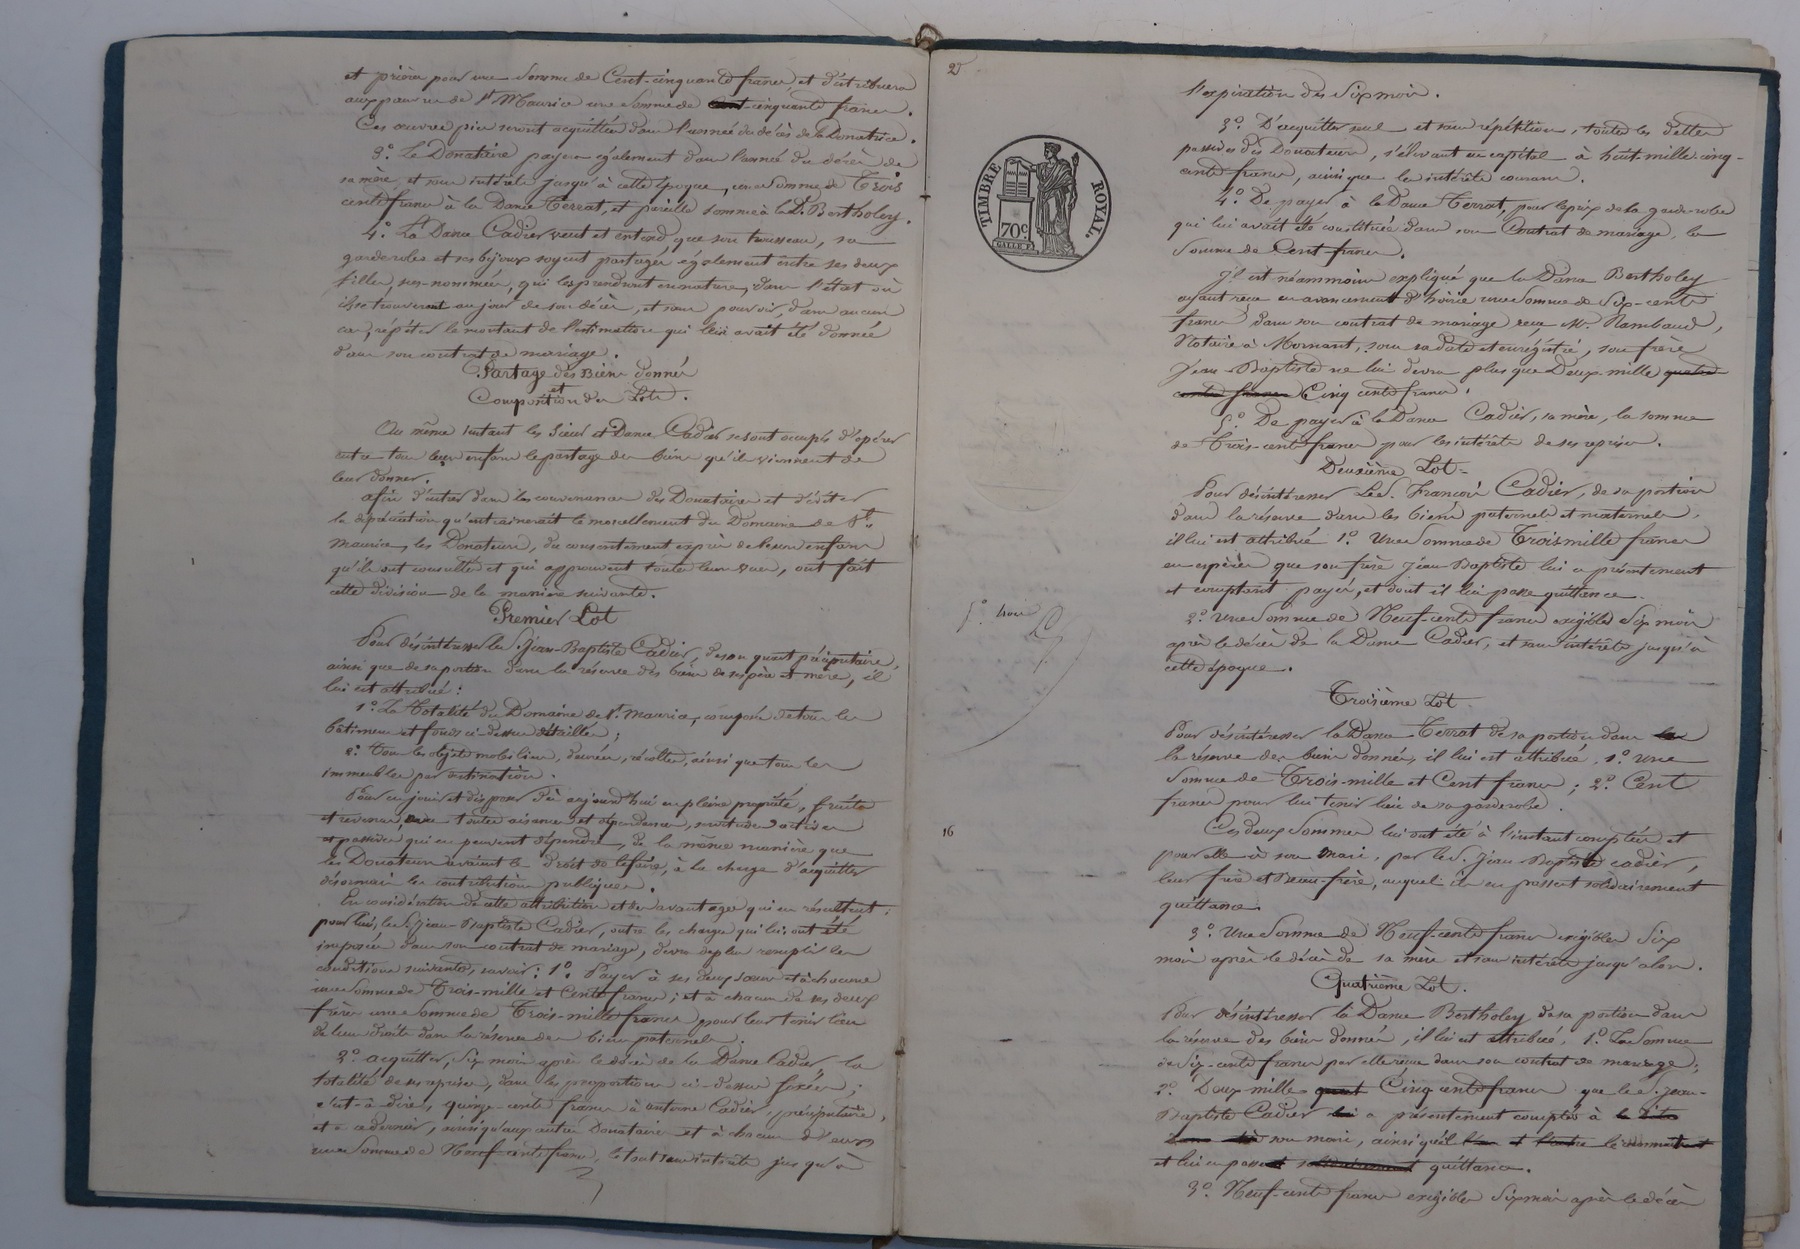 et prières pour une somme de Cent-cinquante francs, et distribuera
aux pauvres de St Maurice une somme de cent-cinquante francs.
Ces œuvres pies seront acquittées dans l'année du décès de la Donatrice.
3.° Le Donataire payera également dans l'année du décès de
sa mère, et sans intérêts jusqu'à cette époque, une somme de Trois
cents francs à la Dame Terrat, et pareille somme à la De Bertholey.
4.° La Dame Cadier veut et entend, que son trousseau, sa
garderobe et ses bijoux soyent partagés également entre ses deux
filles, sus-nommées, qui les prendront en nature, dans l'état où
ils se trouveront au jour de son décès, et sans pouvoir, dans aucun
cas, répéter le montant de l'estimation qui leur avait été donnée
dans son contrat de mariage.
Partage des Biens donnés
et
Composition des Lots.
Au même instant les Sieur et Dame Cadier se sont occupés d'opérer
entre tous leurs enfans le partage des biens qu'ils viennent de
leur donner.
Afin d'entrer dans les convenances des Donataires et d'éviter
la dépréciation qu'entrainerait le morcellement du Domaine de St
Maurice, les Donateurs, du consentement exprès de tous enfans
qu'ils ont consultés et qui approuvent toutes leurs vues, ont fait
cette division de la manière suivante.
Premier Lot
Pour désintéresser le S. Jean-Baptiste Cadier, de son quart préciputaire,
ainsi que de sa portion dans la réserve des biens de ses père et mère, il
lui est attribué:
1.° La Totalité du Domaine de St Maurice, composée de tous les
bâtimens et fonds ci-dessus détaillés;
2.° Tous les objets mobiliers, denrées, récoltes, ainsi que tous les
immeubles par destination.
Pour en jouir et disposer dès aujourd'hui en pleine propriété, fruits
et revenus, avec toutes aisances et dépendances, servitudes actives
et passives qui en peuvent dépendre, de la même manière que
les Donateurs avaient le droit de le faire, à la charge d'acquitter
désormais les contributions publiques.
En considération de cette attribution et des avantages qui en résultent
pour lui, le S. Jean-Baptiste Cadier, outre les charges qui lui ont été
imposées dans son contrat de mariage, devra de plus remplir les
conditions suivantes, savoir: 1.° Payer à ses deux sœurs et à chacune
une somme de Trois-mille et Cent francs; et à chacun de ses deux
frères une somme de Trois-mille francs pour leur tenir lieu
de leurs droits dans la réserve des biens paternels.
2.° acquitter, six mois après le décès de la Dame Cadier, la
totalité de ses reprises, dans les proportions ci-dessus fixées;
c'est-à-dire, quinze-cents francs à Antoine Cadier, préciputaire,
et à ce dernier, ainsi qu'aux autres Donataires et à chacun d'eux
une somme de Neuf cents francs, le tout sans intérêts jusqu'à
2
l'expiration des six mois.
3.° D'acquitter seul et sans répétition, toutes les dettes
passives des Donateurs, s'élevant en capital à huit-mille cinq-
cents francs, ainsi que les intérêts courans.
4.° De payer à la Dame Terrat, pour le prix de la garde-robe
qui lui avait été constituée dans son Contrat de mariage, la
somme de Cent francs.
Il est néanmoins expliqué que la Dame Bertholey
ayant reçu en avancement d'hoirie une somme de Six-cents
francs dans son contrat de mariage reçu Me. Rambaud,
Notaire à Mornant, sous sa date et enrégistré, son frère
Jean-Baptiste ne lui devra plus que Deux-mille quatre
cents francs Cinq cents francs.
5.° De payer à la Dame Cadier, sa mère, la somme
de Trois-cents francs pour les intérêts de ses reprises.
Deuxième Lot
Pour désintéresser Le S. François Cadier, de sa portion
dans la réserve dans les biens paternels et maternels,
il lui est attribué 1.° Une somme de Trois mille francs
en espèces que son frère Jean-Baptiste lui a présentement
et comptant payés, et dont il lui passe quittance.
2.° Une somme de Neuf-cents francs exigibles six mois
après le décès de la Dame Cadier, et sans intérêts jusqu'à
cette époque.
Troisième Lot
Pour désintéresser la Dame Terrat de sa portion dans les
la réserve des biens donnés, il lui est attribué, 1.° Une
somme de Trois-mille et Cent francs; 2.° Cent
francs pour lui tenir lieu de sa garderobe.
Ces deux sommes lui ont été à l'instant comptées et
pour elle à son mari, par le S. Jean-Baptiste Cadier,
leur frère et beau-frère, auquel ils en passent solidairement
quittance.
3.° Une somme de Neuf-cents francs exigibles six
mois après le décès de sa mère et sans intérêts jusqu'alors.
Quatrième Lot.
Pour désintéresser la Dame Bertholey de sa portion dans
la réserve des biens donnés, il lui est attribué, 1.° La somme
de Six-cents francs par elle reçue dans son contrat de mariage;
2.° Deux-mille quat Cinq cents francs que le S. Jean-
Baptiste Cadier lui a présentement comptés à
son mari, ainsi qu'il le reconnait
et lui en passe solidairement quittance.
3.° Neuf-cents francs exigibles six mois après le décès
TIMBRE ROYAL.
70c.
fo. trois
16